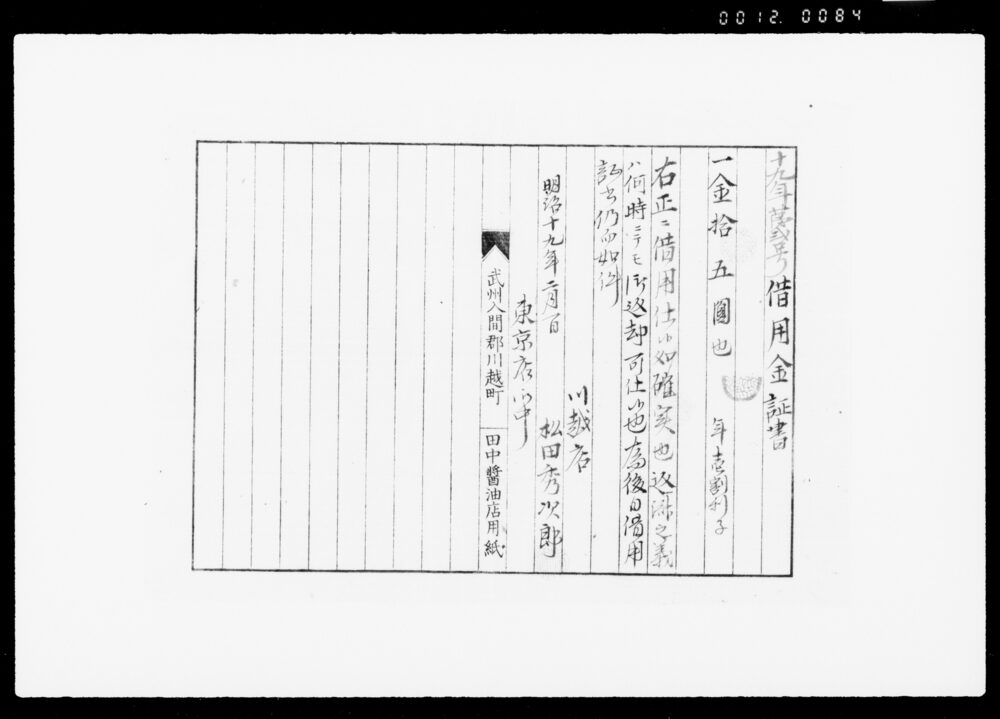 0012. 0084
十九年第弐号
借用金証書
一金拾五圓也 年壱割利子
右正ニ借用仕候処確実也返済之義
ハ何時ニテモ御返却可仕候也為後日借用
証書仍而如件
川越店
明治十九年二月一日 松田秀次郎
東京店御中
武州入間郡川越町 田中醬油店用紙